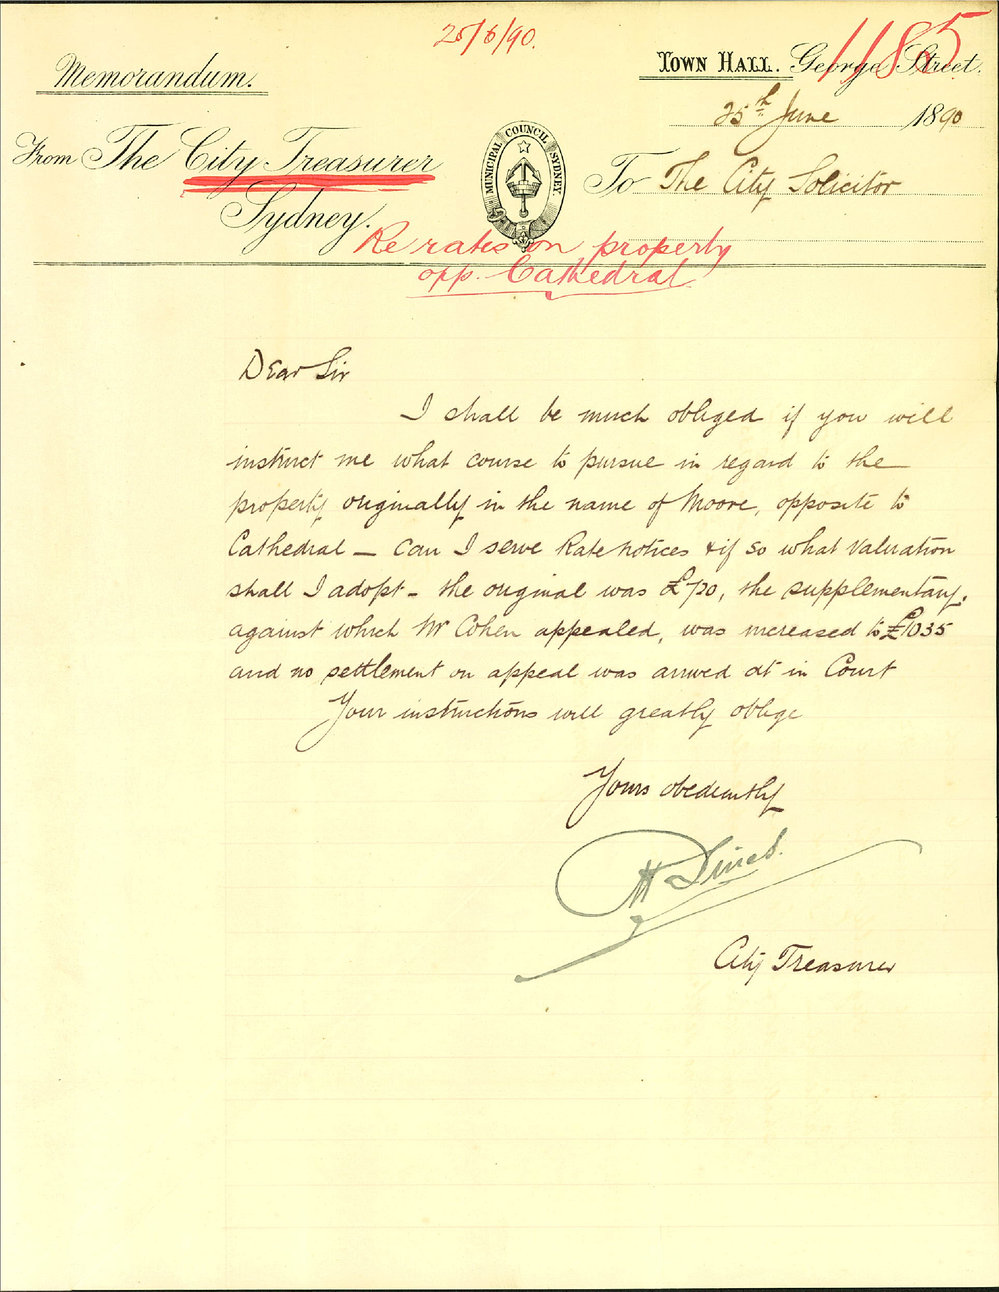 25/6/90.
1185
Memorandum.
TOWN HALL. George Street.
25th June 1890
From The City Treasurer
Sydney.
MUNICIPAL COUNCIL SYDNEY
To The City Solicitor
Re rates on property
opp. Cathedral
Dear Sir
I shall be much obliged if you will
instruct me what course to pursue in regard to the
property originally in the name of Moore, opposite to
Cathedral — Can I serve Rate notices & if so what Valuation
shall I adopt - the original was £720, the supplementary,
against which Mr Cohen appealed, was increased to £1035
and no settlement on appeal was arrived at in Court
Your instructions will greatly oblige
Yours obediently
City Treasurer